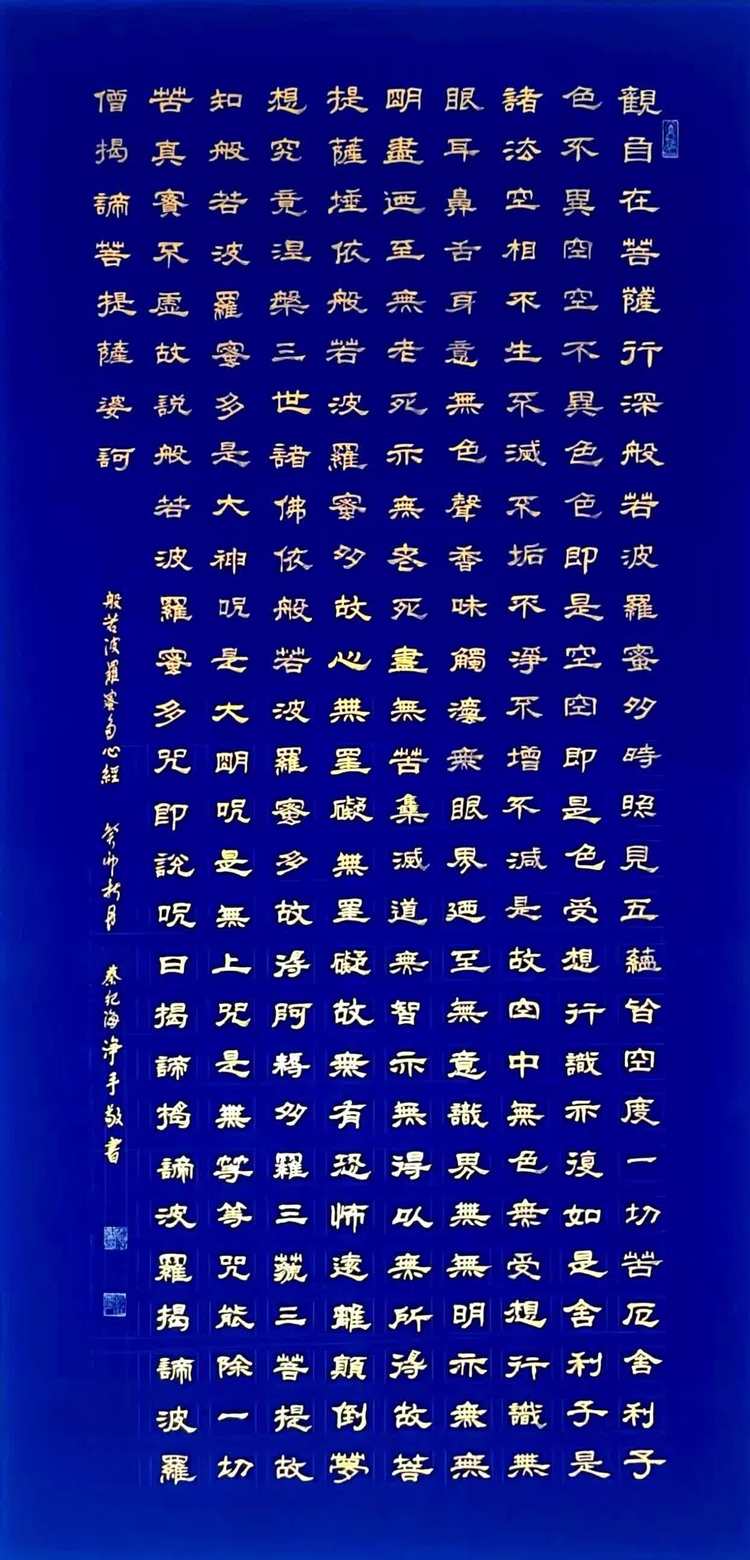 觀自在菩薩行深般若波羅蜜多時照見五蘊皆空度一切苦厄舍利子
色不異空空不異色色即是空空即是色受想行識亦復如是舍利子是
諸法空相不生不滅不垢不淨不增不減是故空中無色無受想行識無
眼耳鼻舌身意無色聲香味觸灋無眼界廼至無意識界無無明亦無無
明盡廼至無老死亦無老死盡無苦集滅道無智亦無得以無所得故菩
提薩埵依般若波羅蜜多故心無罣礙無罣礙故無有恐怖遠離顛倒夢
想究竟涅槃三世諸佛依般若波羅蜜多故得阿耨多羅三藐三菩提故
知般若波羅蜜多是大神呪是大明呪是無上咒是無等等咒能除一切
苦真實不虛故說般若波羅蜜多咒即說呪曰揭諦揭諦波羅揭諦波羅
僧揭諦菩提薩婆訶
般若波羅蜜多心經 癸卯秋月 秦紀海淨手敬書